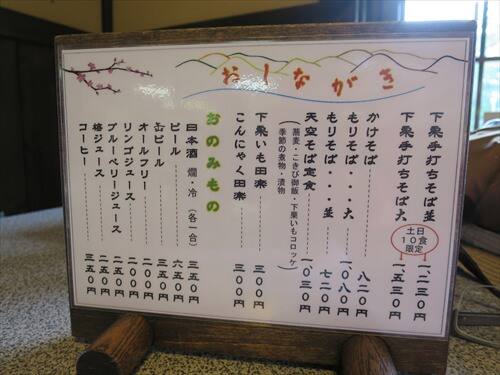 おしながき
下栗手打ちそば並 一、二三〇円
下栗手打ちそば大 一、五三〇円
土日
10食
限定
かけそば 八二〇円
もりそば・・・大 一〇八〇円
もりそば・・・並 七二〇円
天空そば定食 一、〇三〇円
(蕎麦・こきび御飯・下栗いもコロッケ
季節の煮物・漬物)
下栗いも田楽 三〇〇円
こんにゃく田楽 三〇〇円
おのみもの
日本酒 燗・冷(各一合) 三五〇円
ビール 六五〇円
缶ビール 三五〇円
オールフリー 二〇〇円
リンゴジュース 二〇〇円
ブルーベリージュース 二五〇円
梅ジュース 二五〇円
コーヒー 三五〇円